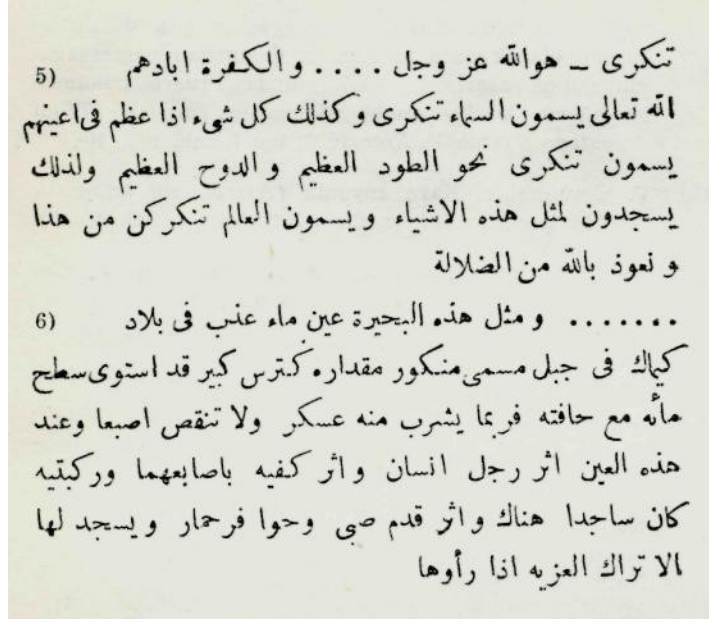 5) تنكرى ــ هوالله عز وجل .... و الكفرة ابادهم
الله تعالى يسمون السماء تنكرى و كذلك كل شىء اذا عظم فى اعينهم
يسمون تنكرى نحو الطود العظيم و الدوح العظيم ولذلك
يسجدون لمثل هذه الاشياء و يسمون العالم تنكركن من هذا
و نعوذ بالله من الضلالة
6) ....... و مثل هذه البحيرة عين ماء عذب فى بلاد
كيماك فى جبل مسمى منكور مقداره كترس كبير قد استوى سطح
مائه مع حافته فربما يشرب منه عسكر ولا تنقص اصبعا وعند
هذه العين اثر رجل انسان و اثر كفيه باصابعهما وركبتيه
كان ساجدا هناك و اثر قدم صبى وحوا فرحمار و يسجد لها
الا تراك العزيه اذا رأوها